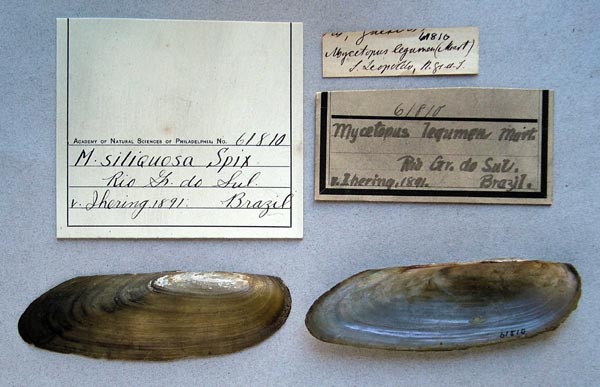 ACADEMY OF NATURAL SCIENCES OF PHILADELPHIA, No. 61810
M. siliquosa Spix
Rio Gr. do Sul.
v. Ihering. 1891. Brazil
61810
Mycetopus legumen (Mart)
S. Leopoldo, R. gr. d. S.
61810
Mycetopus legumen Mart.
Rio Gr. do Sul.
v. Ihering. 1891. Brazil.
61810